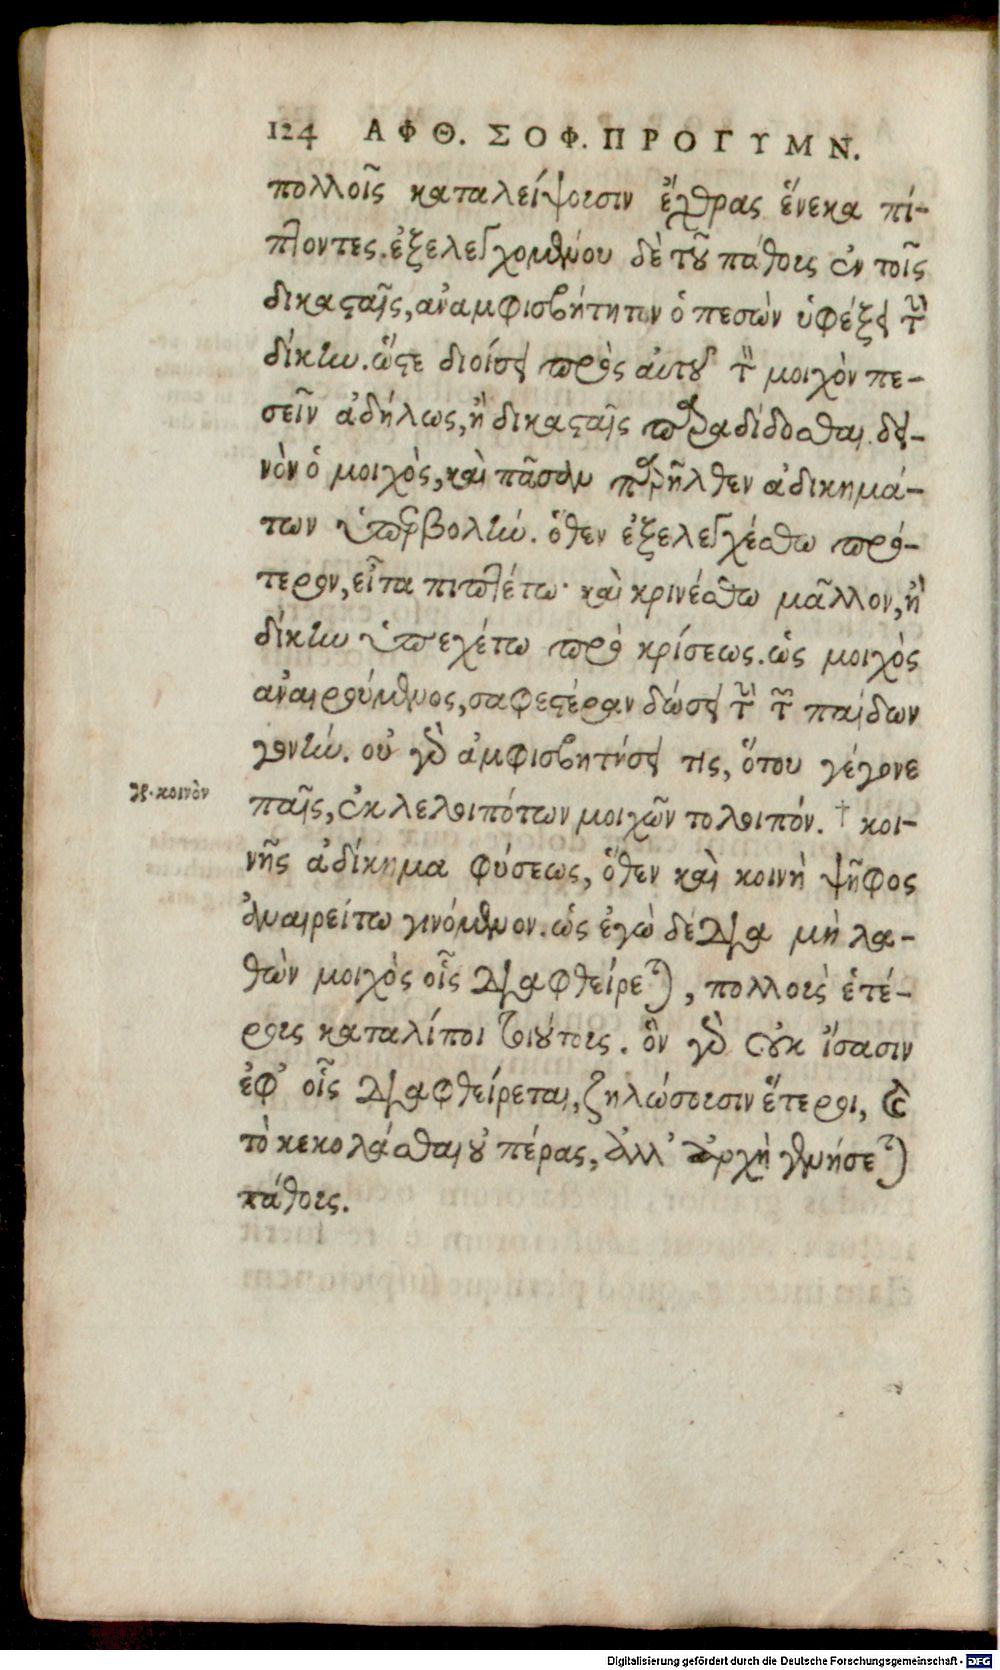 124 ΑΦΘ. ΣΟΦ. ΠΡΟΓΥΜΝ.
πολλοῖς καταλείψουσιν ἔχθρας ἕνεκα πί-
πτοντες. ἐξελεγχομένου δὲ τοῦ πάθους ἐν τοῖς
δικασταῖς, ἀναμφισβήτητον ὁ πεσὼν ὑφέξει τὴν
δίκην. ὥστε διοίσει πρὸς αὐτοῦ τὸν μοιχὸν πε-
σεῖν ἀδήλως, ἢ δικασταῖς παραδίδοσθαι. δει-
νὸν ὁ μοιχὸς, καὶ πᾶσαν παρῆλθεν ἀδικημά-
των ὑπερβολήν. ὅθεν ἐξελεγχέσθω πρό-
τερον, εἶτα πιπτέτω· καὶ κρινέσθω μᾶλλον, ἢ
δίκην ὑπεχέτω πρὸ κρίσεως. ὡς μοιχὸς
ἀναιρούμενος, σαφεστέραν δώσει τὴν τῶν παίδων
γονήν. οὐ γὰρ ἀμφισβητήσει τις, ὅτου γέγονε
γρ. κοινὸν
παῖς, ἐκλελοιπότων μοιχῶν τολοιπόν. † κοι-
νῆς ἀδίκημα φύσεως, ὅθεν καὶ κοινὴ ψῆφος
ἀναιρείτω γινόμενον. ὡς ἐγὼ δέδια μὴ λα-
θὼν μοιχὸς οἷς διαφθείρεται, πολλοὺς ἑτέ-
ρους καταλίποι τοιούτους. ὃν γὰρ οὐκ ἴσασιν
ἐφ’ οἷς διαφθείρεται, ζηλώσουσιν ἕτεροι, καὶ
τὸ κεκολάσθαι οὐ πέρας, ἀλλ’ ἀρχὴ γενήσεται
πάθους.
Digitalisierung gefördert durch die Deutsche Forschungsgemeinschaft - DFG